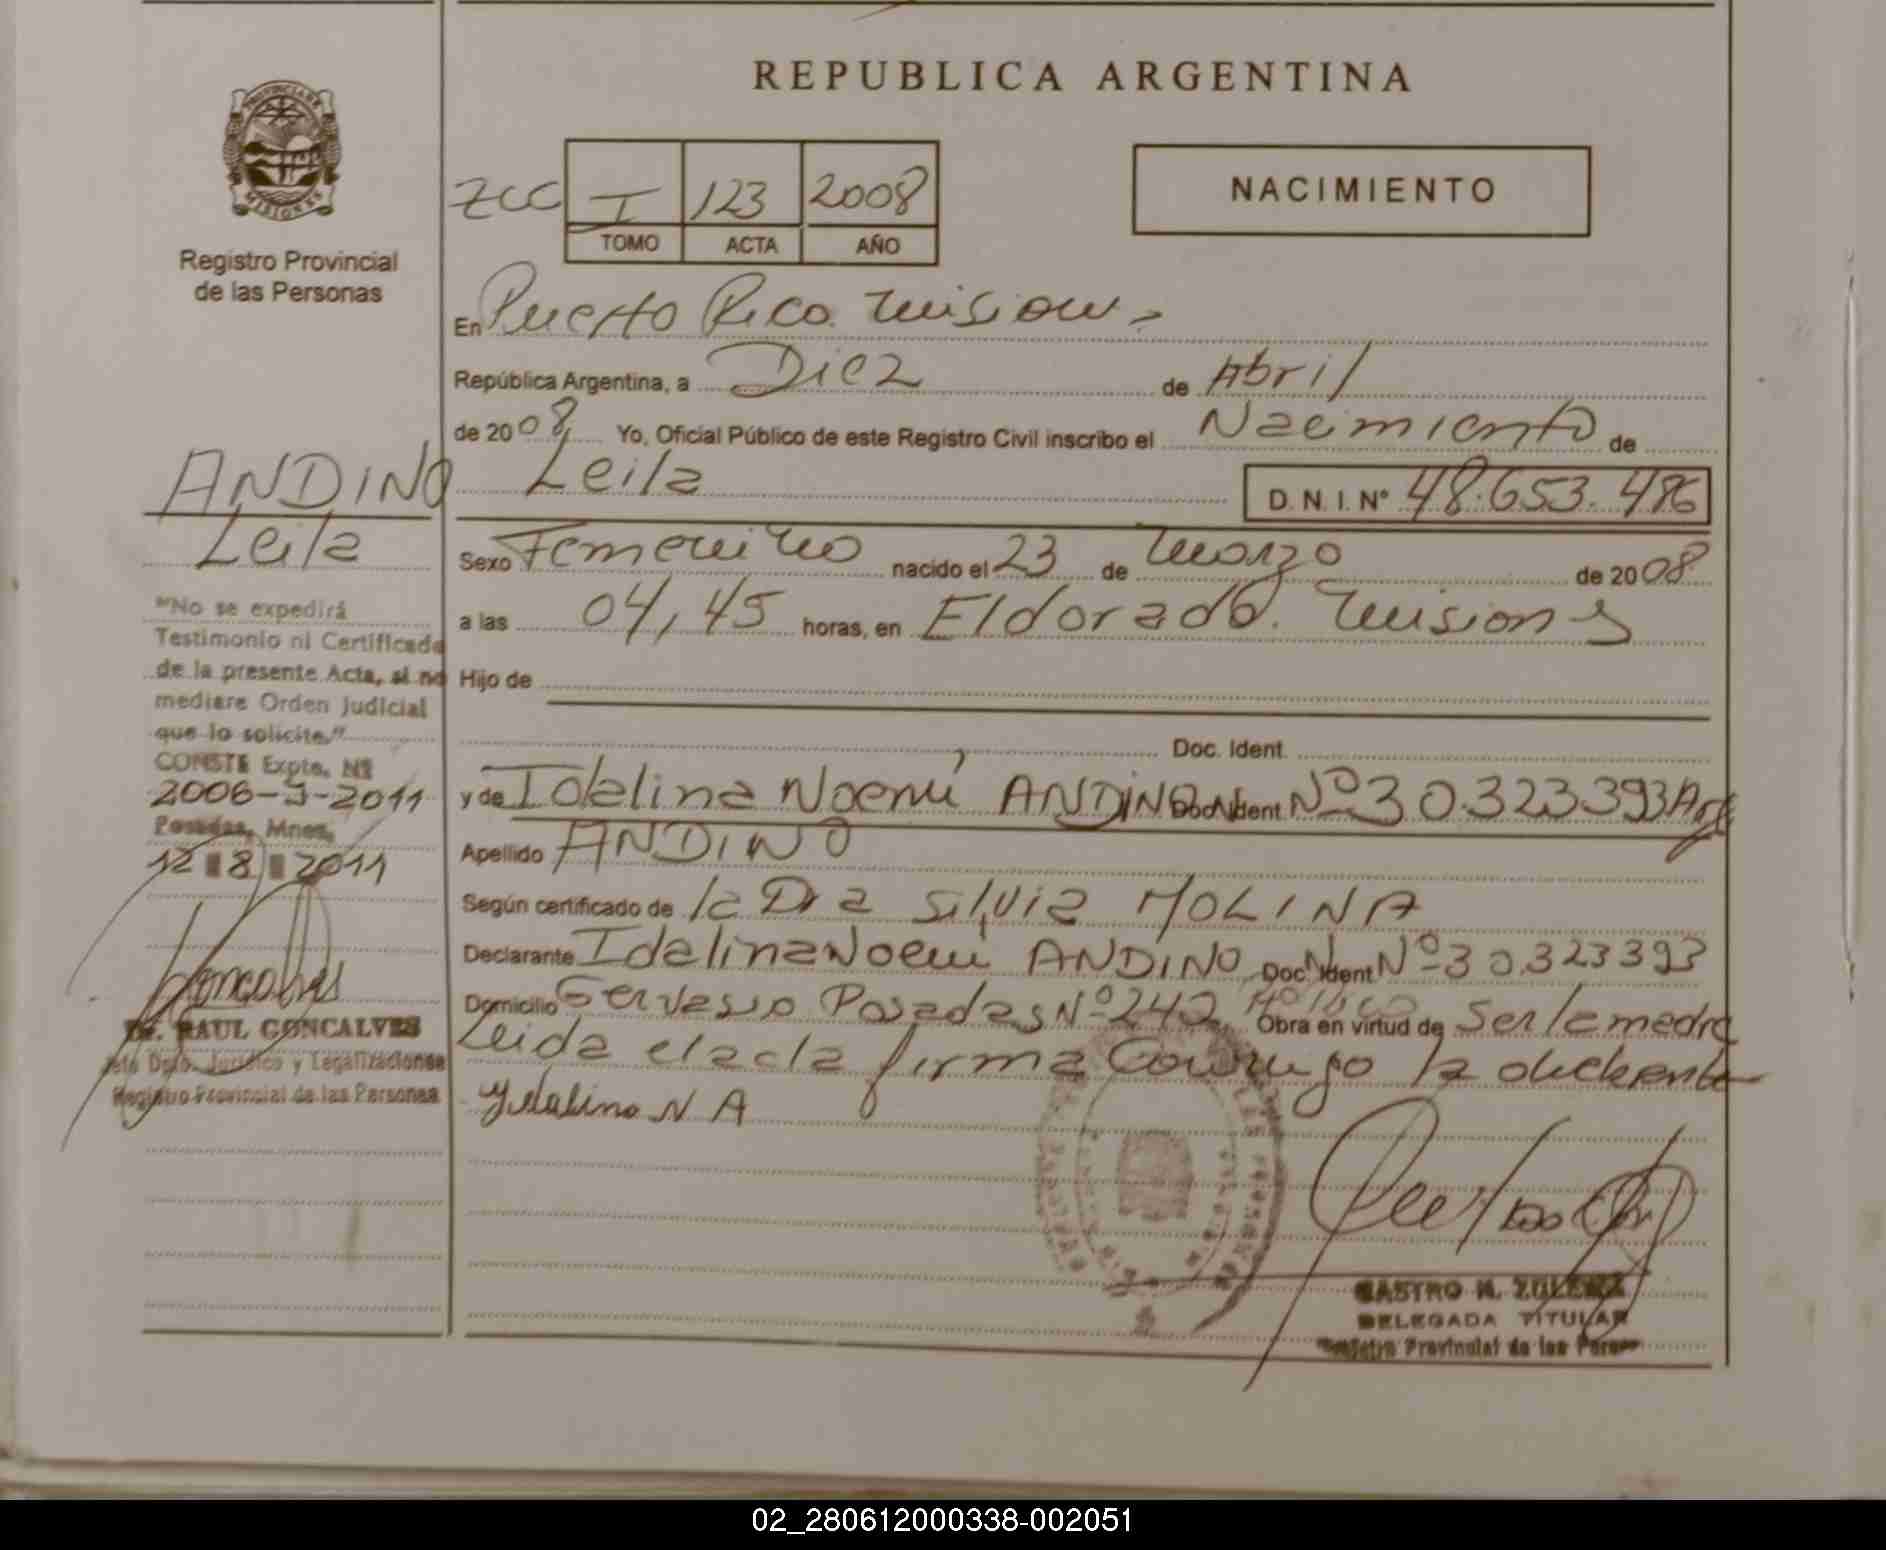 REPUBLICA ARGENTINA
PROVINCIA DE
MISIONES
Registro Provincial
de las Personas
I 123 2008
TOMO ACTA AÑO
NACIMIENTO
En Puerto Rico. Misiones
República Argentina, a Diez de Abril
de 2008, Yo, Oficial Público de este Registro Civil inscribo el Nacimiento de
Leila D. N. I. Nº 48.653.486
Sexo Femenino nacido el 23 de Marzo de 2008
a las 04,45 horas, en Eldorado. Misiones
Hijo de
Doc. Ident.
y de Idelina Noemí ANDINO Doc. Ident. Nº 30.323.393 Arg
Apellido ANDINO
Según certificado de la Dra Silvia MOLINA
Declarante Idelina Noemí ANDINO Doc. Ident. Nº 30.323393
Domicilio Gervasio Posadas Nº 242 Obra en virtud de Ser la madre
Leida el acta firma Conmigo la declarante
Idalina N A
ANDINO
Leila
"No se expedirá
Testimonio ni Certificado
de la presente Acta, si no
mediare Orden Judicial
que lo solicite."
CONSTE Expte. Nº
2006-J-2011
Posadas, Mnes,
12 8 2011
Dr. RAUL GONCALVES
Jefe Dpto. Jurídico y Legalizaciones
Registro Provincial de las Personas
CASTRO M. ZULEMA
DELEGADA TITULAR
Registro Provincial de las Personas
02_280612000338-002051